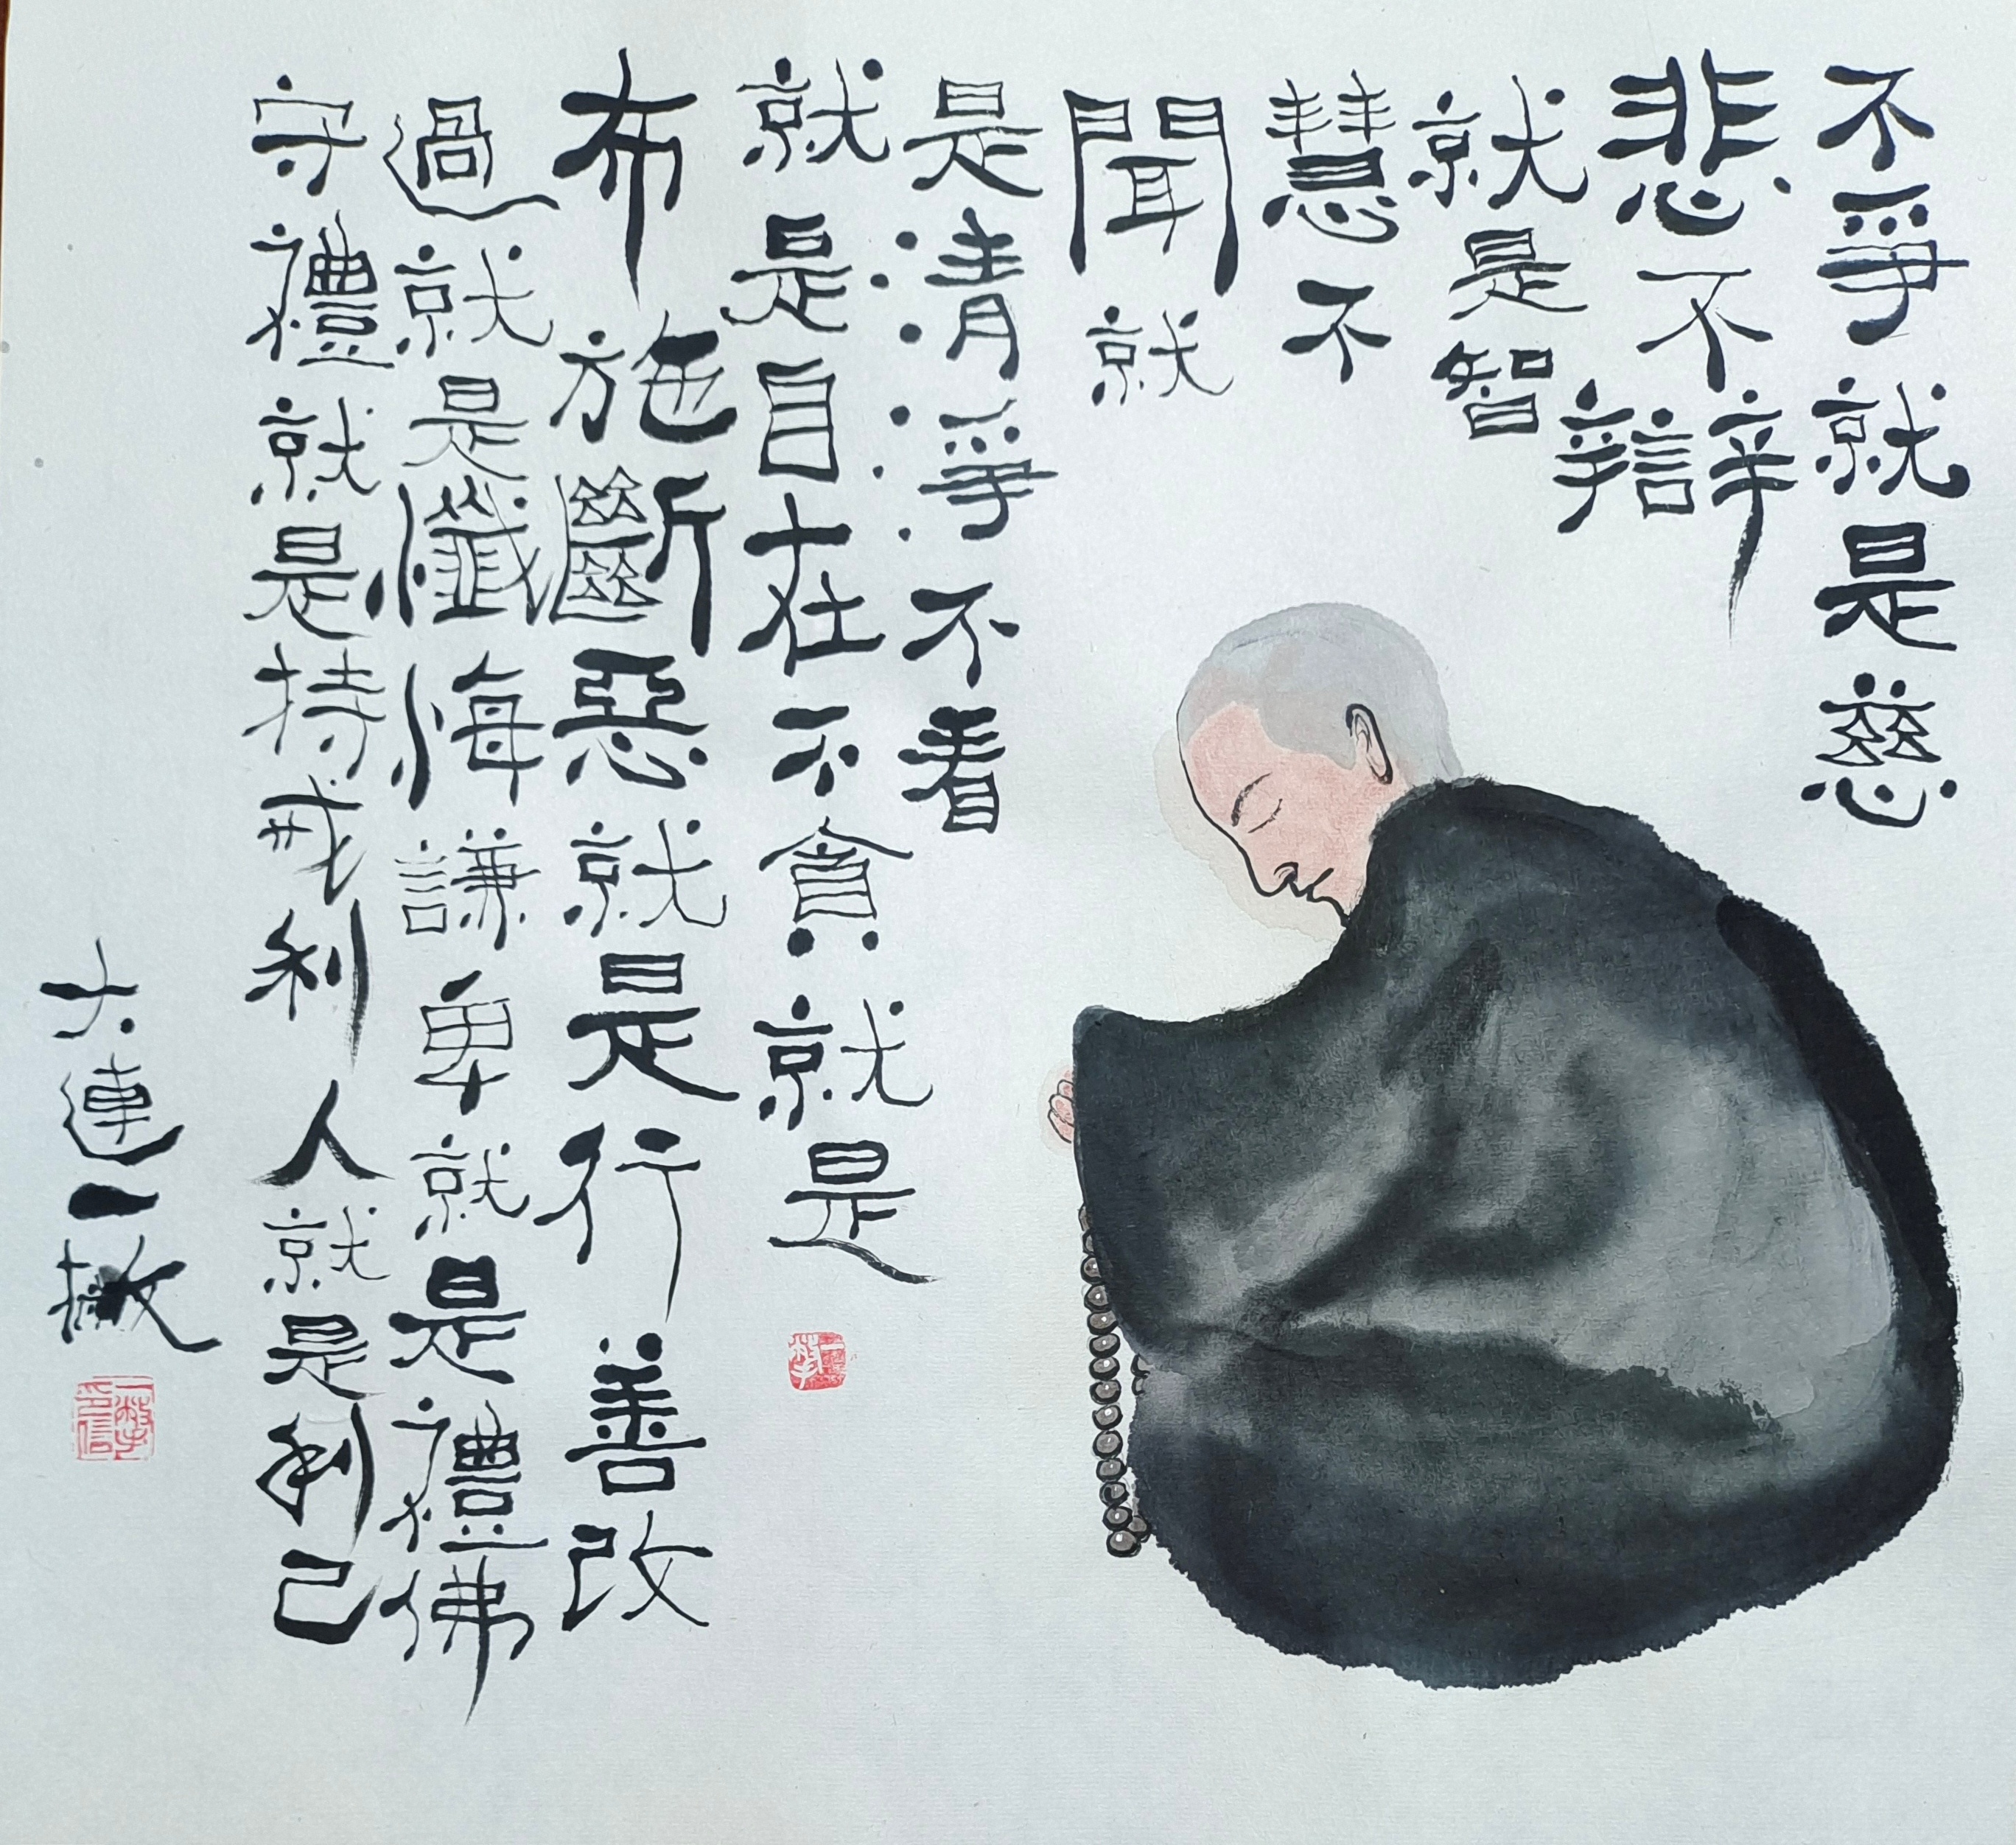 不爭就是慈
悲不辯
就是智
慧不
聞就
是清淨不看
就是自在不貪就是
布施斷惡就是行善改
過就是懺悔謙卑就是禮佛
守禮就是持戒利人就是利己
大連一撇